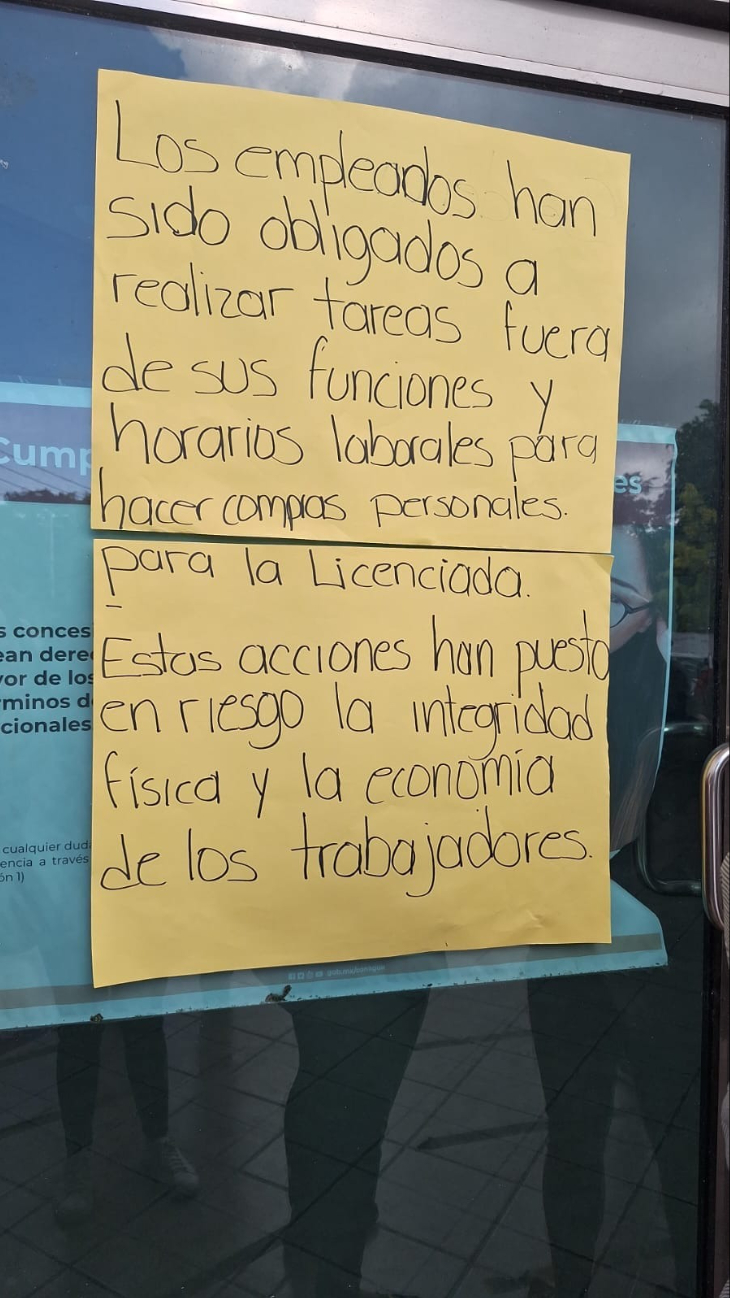 Los empleados han
sido obligados a
realizar tareas fuera
de sus funciones y
horarios laborales para
hacer compras personales.
para la Licenciada.
Estas acciones han puesto
en riesgo la integridad
física y la economía
de los trabajadores.
Cump
es
s conces
ean dere
vor de los
rminos d
cionales
cualquier dud
encia a través
ón 1)